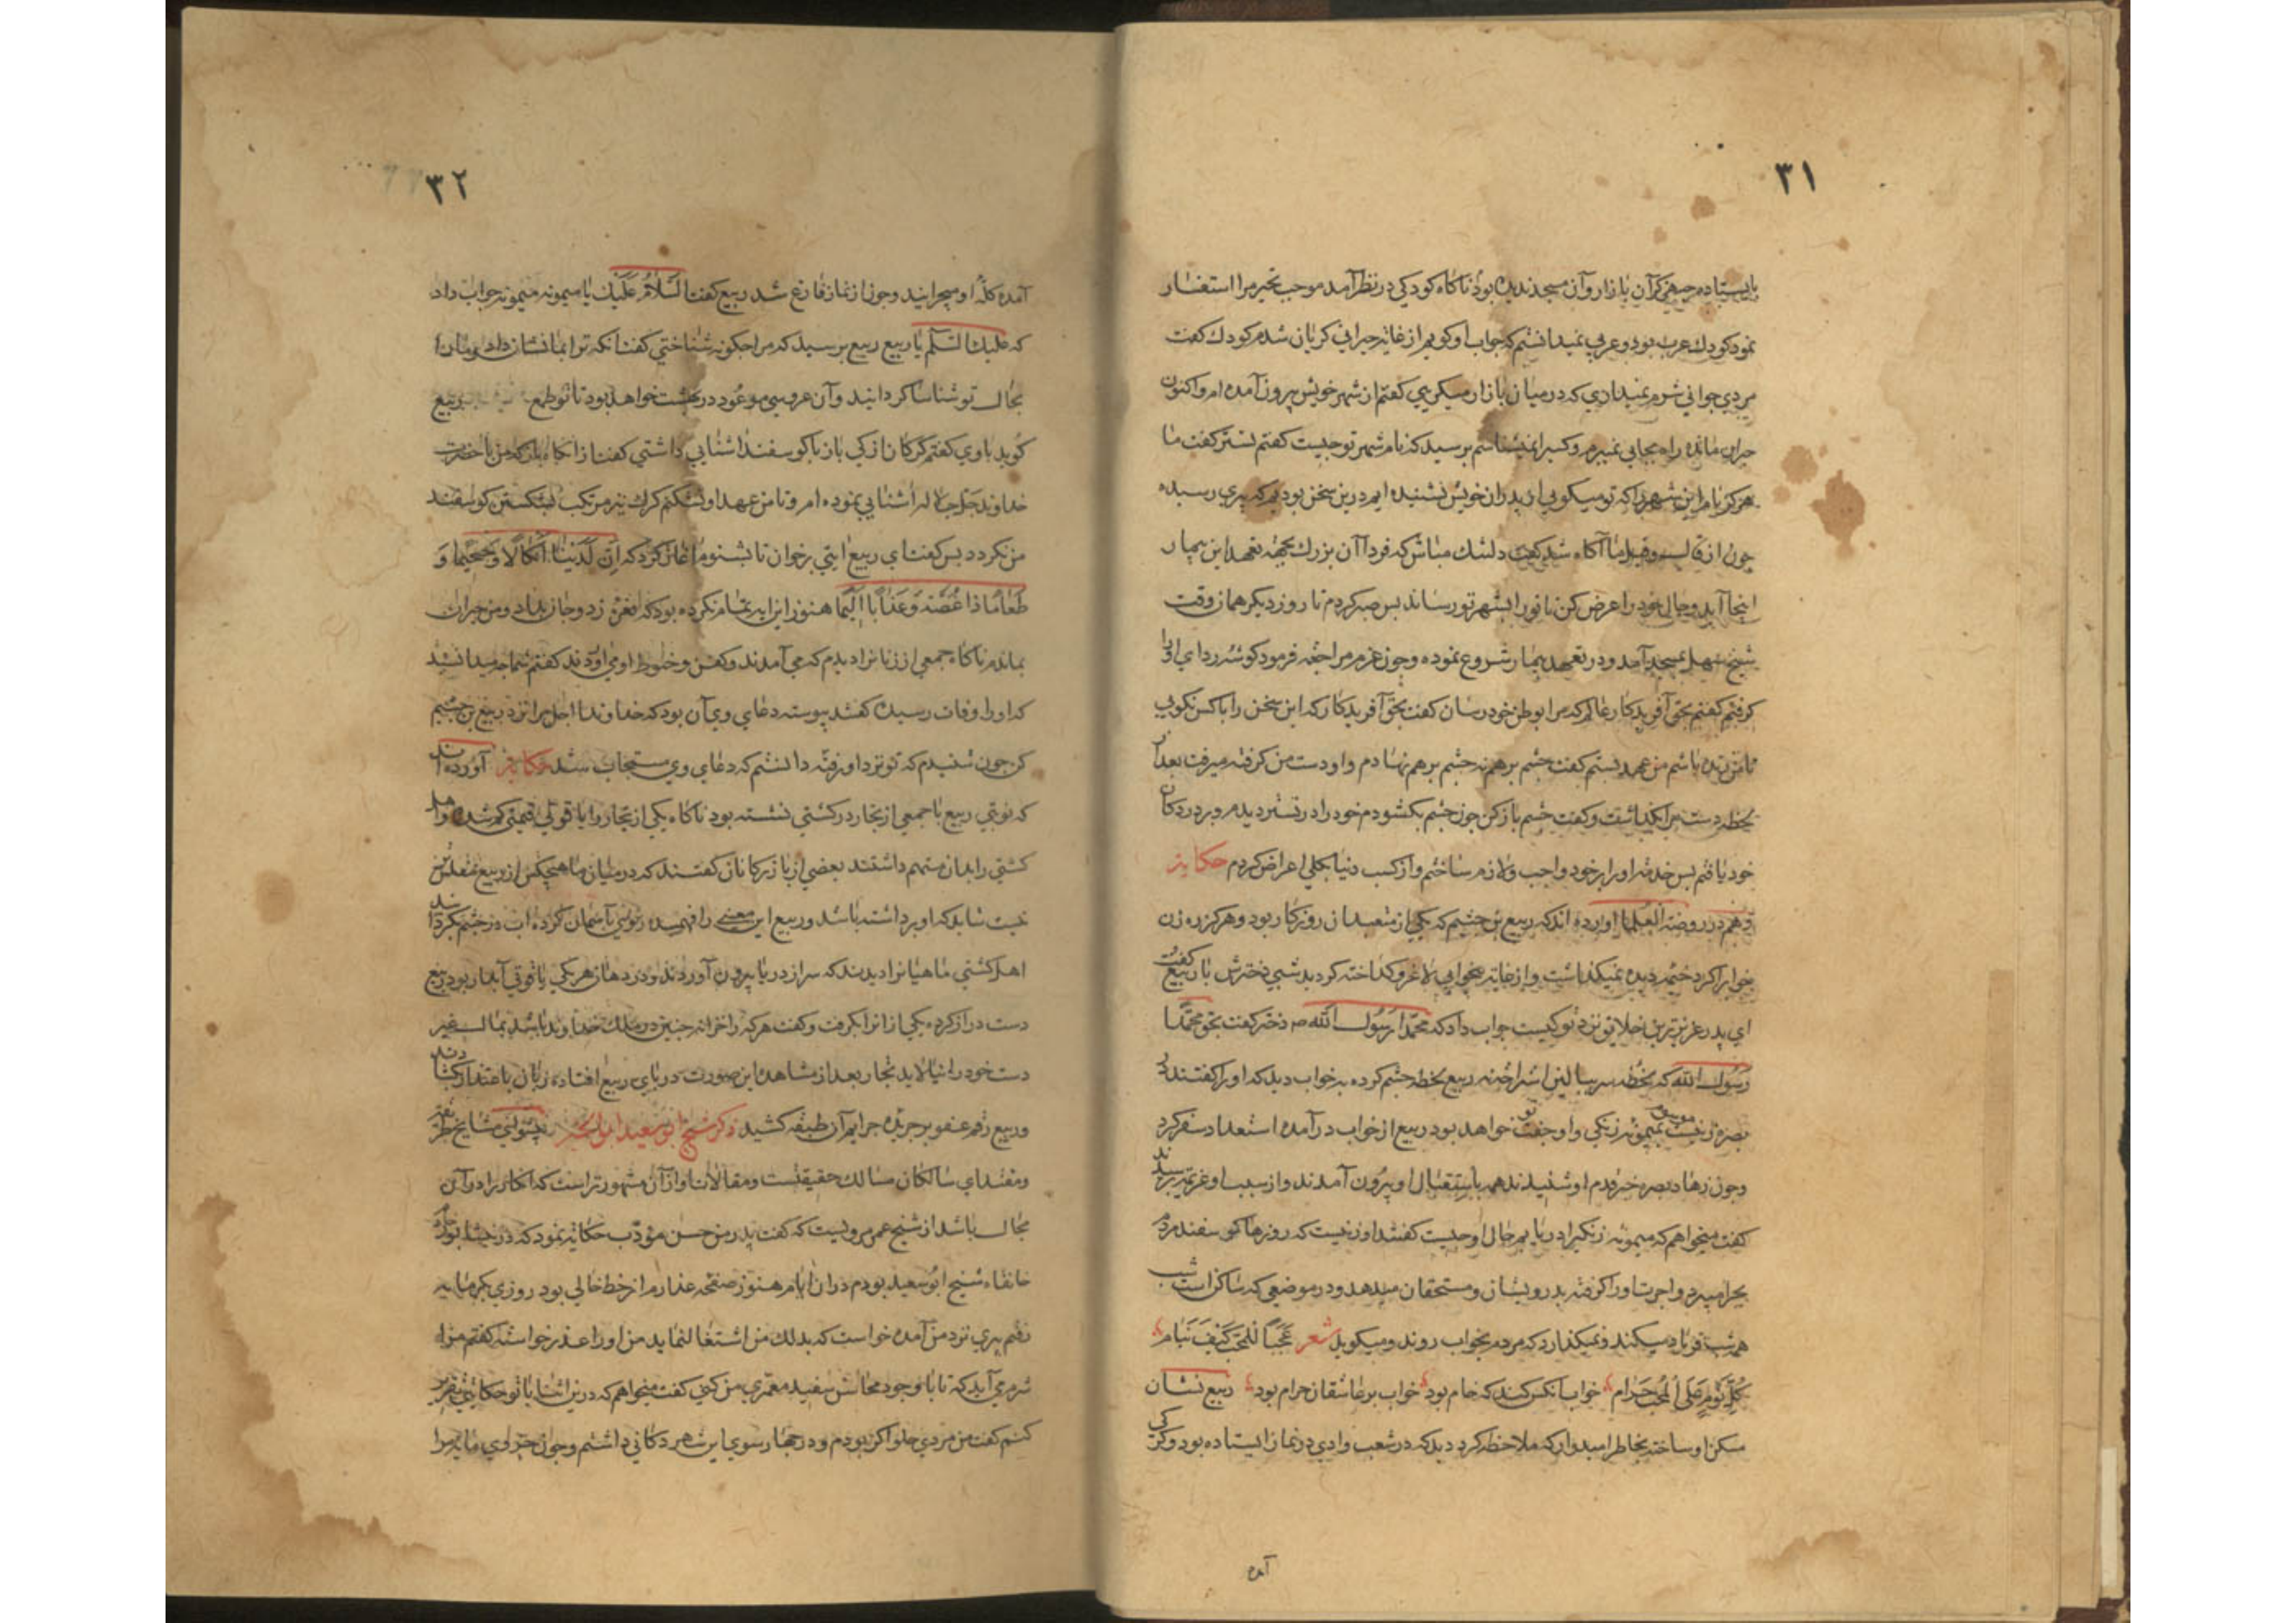 ۳۱
بایستادم چه هرگز آن بازار و آن مسجد ندیده بودم ناکاه کودکی در نظر آمد موجب تحیر مرا استفسار
نمود کودك عرب بود و عربی نمیدانستم که جواب او کویم از غایة حیرانی کریان شدم کودك کفت
مردی جوانی شرم نمیداری که در میان بازار میکریی کفتم از شهر خویش بیرون آمده ام و اکنون
حیران مانده راه بجایی نمیبرم و کسیرا نمیشناسم برسید که نام شهر تو چیست کفتم تستر کفت ما
هرکز نام این شهر را که تو میکویی از پدران خویش نشنیده ایم درین سخن بودیم که پیری رسیده
چون از قال و قیل ما آکاه شد کفت دلتنك مباش که فردا آن بزرك بجهة تعهد این بیمار
اینجا آید و حال خود را عرض کن تا تورا بشهر تو رساند بس صبر کردم تا روز دیکر همان وقت
شیخ سهل بمسجد آمد و در تعهد بیمار شروع نموده و چون عزم مراجعة فرمود کوشه ردای او را
کرفتم کفتم بحق آفریدکار عالم که مرا بوطن خود رسان کفت بحق آفریدکار که این سخن را با کس نکویی
تا من زنده باشم من عهد بستم کفت چشم برهم نه چشم برهم نهادم و او دست من کرفته میرفت بعد از
لحظه دست مرا بکذاشت و کفت چشم باز کن چون چشم بکشودم خود را در تستر دیدم و بر در دکان
خود یافتم بس خدمة او را بر خود واجب و لازم ساختم و از کسب دنیا بکلی اعراض کردم حکایة
دهم در روضة العلما اورده اند که ربیع بن خثیم که یکی از متعبدان روزکار بود و هرکز ره زن
خوابرا کرد خیمه دیده نمیکذاشت و از غایة بیخوابی لاغر و کداخته کردید شبی دخترش با ربیع کفت
ای پدر عزیزترین خلایق نزد تو کیست جواب داد که محمدا رسول الله ص دختر کفت بحق محمدا
رسول الله که لحظه سر ببالین استراحة نه ربیع لحظه چشم کرم کرده به خواب دید که او را کفتند در
بصره زنیست میمونه زنکی و او جفت تو خواهد بود ربیع از خواب درآمده استعداد سفر کرد
و چون زهاد بصره خبر قدم او شنیدند همه باستقبال او بیرون آمدند و از سبب او عزیمة برسیدند
کفت میخواهم که میمونه زنکیرا دریابم حال او چیست کفتند او زنیست که روزها کوسفند مردم
بچرا میبرد و اجرت او را کرفته بدرویشان و مستحقان میدهد و در موضعی که ساکن است شب
همه شب فریاد میکند و نمیکذارد که مردم بخواب روند و میکوید شعر عَجَبًا لِلْمُحِبِّ کَیْفَ یَنَام
کُلُّ نَوْمٍ عَلَی الْمُحِبِّ حَرَام خواب آنکس کند که خام بود خواب بر عاشقان حرام بود ربیع نشان
مسکن او ساخته بخاطر امیدوار که ملاحظه کرد دید که در شعب وادی در نماز ایستاده بود و کرکی
آمده
۳۲
آمده کلهٔ او میچرانید و چون از نماز فارغ شد ربیع کفت السَّلَامُ عَلَیْك یا میمونه میمونه جواب داد
که علیك السلم یا ربیع ربیع برسید که مرا چکونه شناختی کفت آنکه ترا بما نشان داد و مارا
بحال تو شناسا کردانید و آن عروسی موعود در بهشت خواهد بود تا تو طمع ربیع
کوید با وی کفتم کرکان از کی باز با کوسفند اشنایی داشتی کفت از آنکاه باز که من با حضرت
خداوند جل جلاله اشنایی نموده ام و تا من عهد او نشکنم کرك نیز مرتکب شکستن کوسفند
من نکردد بس کفت ای ربیع ایتی برخوان تا بشنوم آغاز کردم که اِنَّ لَدَیْنَا اَنْکَالًا وَجَحِیمًا وَ
طَعَامًا ذَا غُصَّةٍ وَعَذَابًا اَلِیمًا هنوز این ایه تمام نکرده بود که نعره زد و جان بداد و من حیران
بماندم ناکاه جمعی از زنانرا دیدم که می آمدند و کفن و حنوط او می آوردند کفتم شما چه میدانستید
که او را وفات رسیده کفتند پیوسته دعای وی آن بود که خداوندا اجل مرا نزد ربیع بن خثیم
کن چون شنیدیم که تو نزد او رفته دانستیم که دعای وی مستجاب شد حکایة آورده اند
که نوبتی ربیع با جمعی از تجار در کشتی نشسته بود ناکاه یکی از تجار را یاقوتی قیمتی کم شد و اهل
کشتی را بدان متهم داشتند بعضی از بازرکانان کفتند که در میان ما هیچکس از ربیع مفلس تر
نیست شاید که او برداشته باشد و ربیع این معنی را فهمیده روی بآسمان کرده اب در چشم بکردانید
اهل کشتی ماهیانرا دیدند که سر از دریا بیرون آوردند و در دهان هر یکی یاقوتی آبدار بود ربیع
دست دراز کرده یکی از انرا بکرفت و کفت هر که را خزانه چنین در ملك خداوند باشد بمال غیر
دست خود را نیالاید تجار بعد از مشاهده این صورت در بای ربیع افتاده زبان باعتذار کشادند
و ربیع رقم عفو بر جریده جرایم آن طبقه کشید ذکر شیخ ابو سعید ابو الخیر پیشوای مشایخ طریقة
و مقتدای سالکان مسالك حقیقتست و مقالات او از آن مشهورتر است که انکار را در آن
مجال باشد از شیخ عمر مرویست که کفت پدر من حسن مؤدب حکایة نمود که در نیشابور در
خانقاه شیخ ابو سعید بودم دران ایام هنوز صفحه عذارم از خط خالی بود روزی بکرمابه
رفتم پیری نزد من آمده خواست که بدلك من اشتغال نماید من او را عذر خواسته کفتم مرا
شرم می آید که تا با وجود محاسن سفید معمری من کنی کفت میخواهم که درین اثنا با تو حکایتی تقریر
کنم کفت من مردی حلواکر بودم و در چهار سوی این شهر دکانی داشتم و چون جزوی مایه مرا